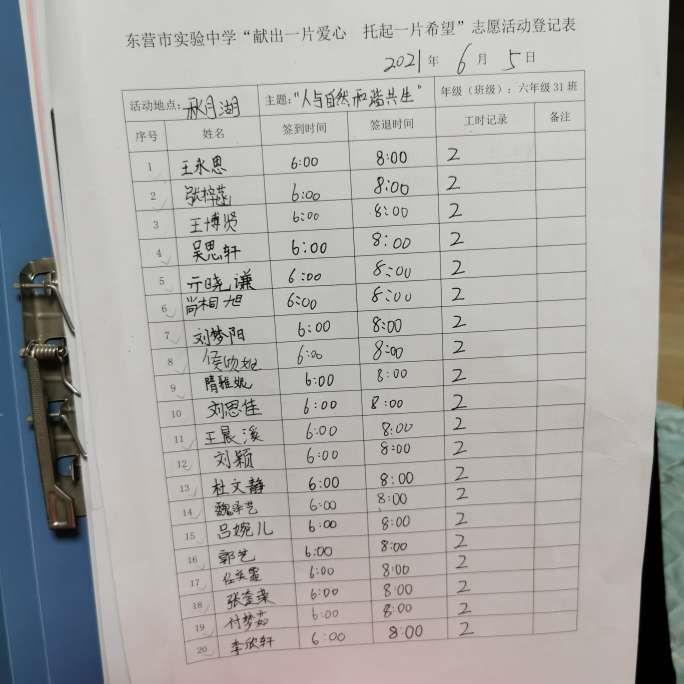 东营市实验中学“献出一片爱心 托起一片希望”志愿活动登记表
2021 年 6 月 5 日
活动地点: 秋月湖 主题:"人与自然和谐共生" 年级（班级）: 六年级 31 班
序号 姓名 签到时间 签退时间 工时记录 备注
1 王永恩 6:00 8:00 2
2 张梓菡 6:00 8:00 2
3 王博贤 6:00 8:00 2
4 吴思轩 6:00 8:00 2
5 亓晓谦 6:00 8:00 2
6 尚相旭 6:00 8:00 2
7 刘梦阳 6:00 8:00 2
8 6:00 8:00 2
9 隋雅妮 6:00 8:00 2
10 刘思佳 6:00 8:00 2
11 王晨溪 6:00 8:00 2
12 刘颖 6:00 8:00 2
13 杜文静 6:00 8:00 2
14 魏泽艺 6:00 8:00 2
15 吕婉儿 6:00 8:00 2
16 郭艺 6:00 8:00 2
17 6:00 8:00 2
18 6:00 8:00 2
19 付梦茹 6:00 8:00 2
20 李欣轩 6:00 8:00 2